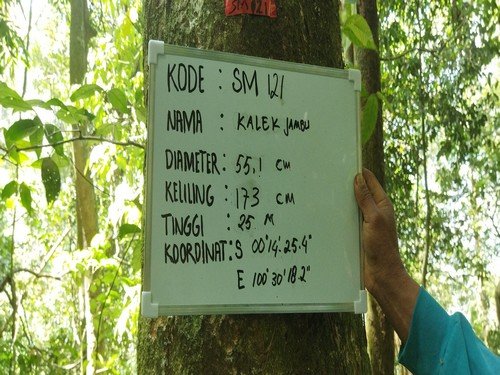 SM 121
KODE : SM 121
NAMA : KALEK JAMBU
DIAMETER : 55,1 CM
KELILING : 173 CM
TINGGI : 25 M
KOORDINAT : S 00°14'25.4"
E 100°30'18.2"